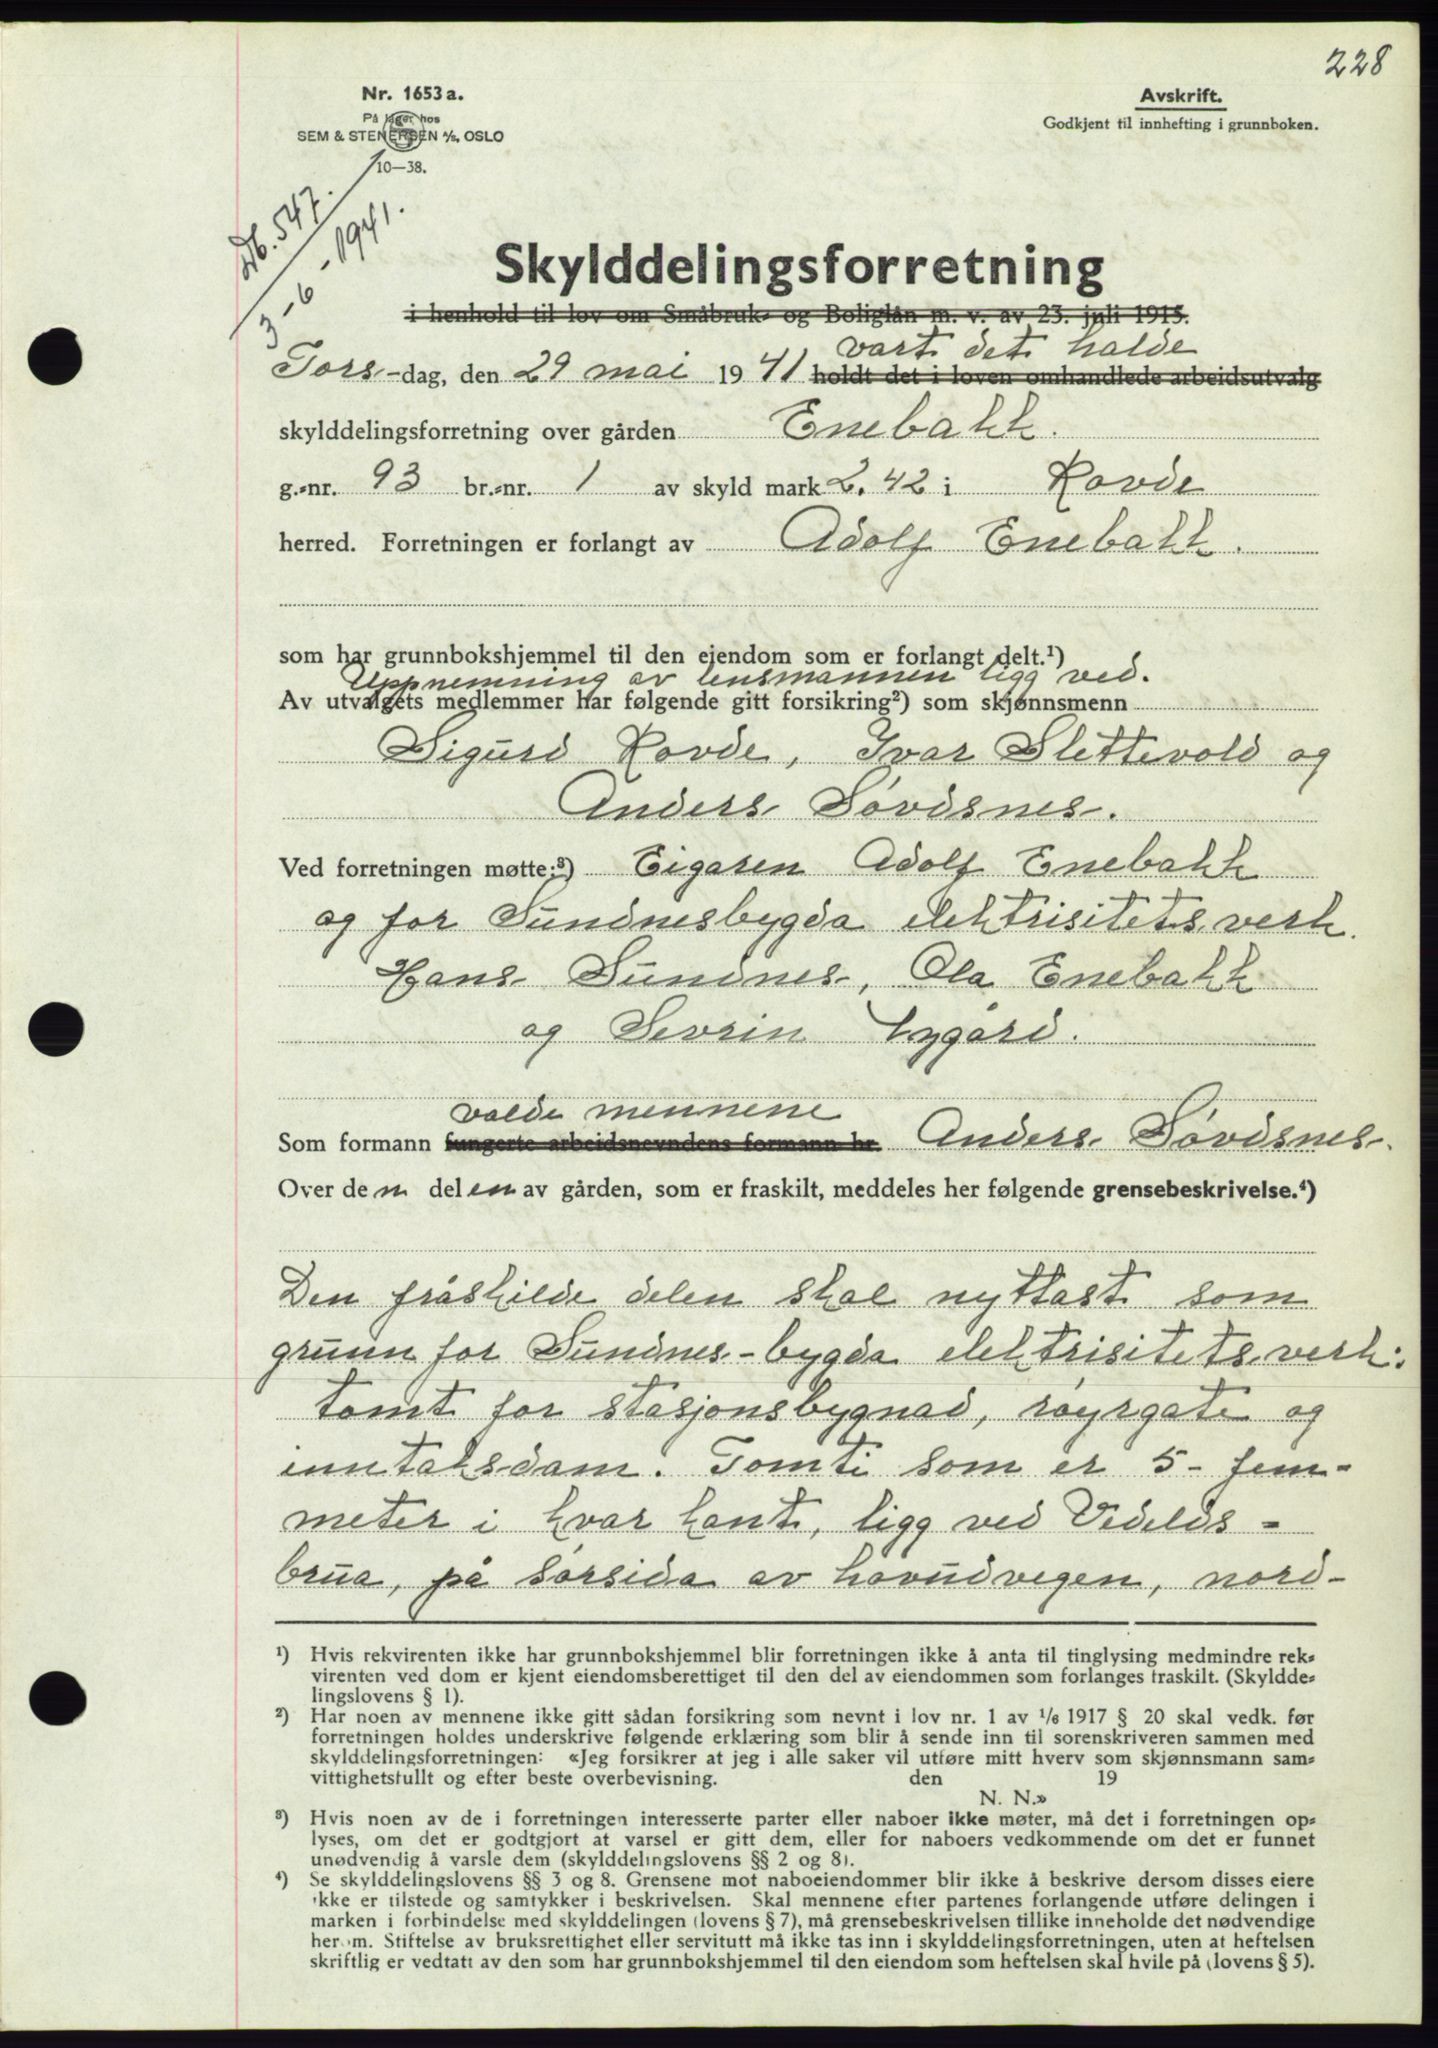 228
Nr. 1653 a.
På lager hos
SEM & STENERSEN A/S, OSLO
10—38.
Avskrift.
Godkjent til innhefting i grunnboken.
Db. 547.
3-6-1941.
Skylddelingsforretning
i henhold til lov om Småbruk- og Boliglån m. v. av 23. juli 1915.
vart det halde
Tors-dag, den 29 mai 1941 holdt det i loven omhandlede arbeidsutvalg
skylddelingsforretning over gården Enebakk.
g.-nr. 93 br.-nr. 1 av skyld mark 2,42 i Rovde
herred. Forretningen er forlangt av Adolf Enebakk.
som har grunnbokshjemmel til den eiendom som er forlangt delt.¹)
Uppnemning av lensmannen ligg ved.
Av utvalgets medlemmer har følgende gitt forsikring²) som skjønnsmenn
Sigurd Rovde, Ivar Slettevold og
Anders Søvdsnes.
Ved forretningen møtte:³) Eigaren Adolf Enebakk
og for Sundnesbygda elektrisitetsverk
Hans Sundnes, Ola Enebakk
og Sevrin Nygård.
valde mennene
Som formann fungerte arbeidsnevndens formann hr. Anders Søvdsnes.
Over den delen av gården, som er fraskilt, meddeles her følgende grensebeskrivelse.⁴)
Den fråskilde delen skal nyttast som
grunn for Sundnes-bygda elektrisitetsverk:
tomt for stasjonsbygnad, røyrgate og
inntaksdam. Tomti som er 5- fem-
meter i kvar kant, ligg ved Vedelds-
brua, på sørsida av hovudvegen, nord-
¹) Hvis rekvirenten ikke har grunnbokshjemmel blir forretningen ikke å anta til tinglysing medmindre rek-
virenten ved dom er kjent eiendomsberettiget til den del av eiendommen som forlanges fraskilt. (Skyldde-
lingslovens § 1).
²) Har noen av mennene ikke gitt sådan forsikring som nevnt i lov nr. 1 av 1/6 1917 § 20 skal vedk. før
forretningen holdes underskrive følgende erklæring som blir å sende inn til sorenskriveren sammen med
skylddelingsforretningen: «Jeg forsikrer at jeg i alle saker vil utføre mitt hverv som skjønnsmann sam-
vittighetsfullt og efter beste overbevisning. den 19
N. N.»
³) Hvis noen av de i forretningen interesserte parter eller naboer ikke møter, må det i forretningen op-
lyses, om det er godtgjort at varsel er gitt dem, eller for naboers vedkommende om det er funnet
unødvendig å varsle dem (skylddelingslovens §§ 2 og 8).
⁴) Se skylddelingslovens §§ 3 og 8. Grensene mot naboeiendommer blir ikke å beskrive dersom disses eiere
ikke er tilstede og samtykker i beskrivelsen. Skal mennene efter partenes forlangende utføre delingen i
marken i forbindelse med skylddelingen (lovens § 7), må grensebeskrivelsen tillike inneholde det nødvendige
herom. Stiftelse av bruksrettighet eller servitutt må ikke tas inn i skylddelingsforretningen, uten at heftelsen
skriftlig er vedtatt av den som har grunnbokshjemmel til den eiendom som heftelsen skal hvile på (lovens § 5).